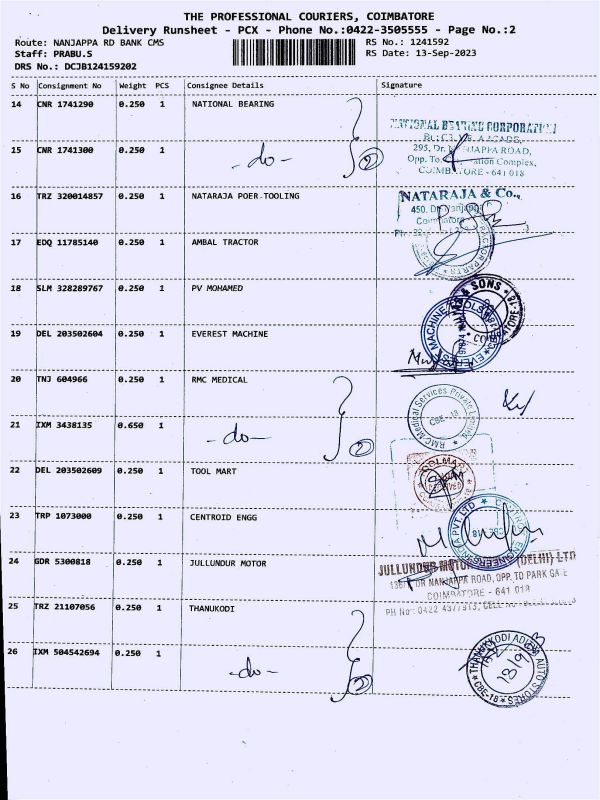 THE PROFESSIONAL COURIERS, COIMBATORE
Delivery Runsheet - PCX - Phone No.:0422-3505555 - Page No.:2
Route: NANJAPPA RD BANK CMS RS No.: 1241592
Staff: PRABU.S RS Date: 13-Sep-2023
DRS No.: DCJB124159202
S No Consignment No Weight PCS Consignee Details Signature
14 CNR 1741290 0.250 1 NATIONAL BEARING
NATIONAL BEARING CORPORATION
15 CNR 1741300 0.250 1 -do- 2
295, Dr. NANJAPPA ROAD,
Opp. To. Complex,
COIMBATORE - 641 018
16 TRZ 320014857 0.250 1 NATARAJA POER TOOLING
NATARAJA & Co.,
450, Dr. Nanjappa
Coimbatore
17 EDQ 11785140 0.250 1 AMBAL TRACTOR
TRACTOR PARTS
18 SLM 328289767 0.250 1 PV MOHAMED
& SONS
19 DEL 203502604 0.250 1 EVEREST MACHINE
20 TNJ 604966 0.250 1 RMC MEDICAL
RMC Medical Services Private Limited
CBE-18
21 IXM 3438135 0.650 1 -do- 2
22 DEL 203502609 0.250 1 TOOL MART
TOOLMART
23 TRP 1073000 0.250 1 CENTROID ENGG
CENTROID ENGINEERS PVT LTD
CBE-18
24 GDR 5300818 0.250 1 JULLUNDUR MOTOR
JULLUNDUR MOTOR (DELHI) LTD
DR NANJAPPA ROAD, OPP. TO PARK GATE
COIMBATORE - 641 018
25 TRZ 21107056 0.250 1 THANUKODI
26 IXM 504542694 0.250 1 -do- 2
THANUKKODI AUTO STORES
CBE-18